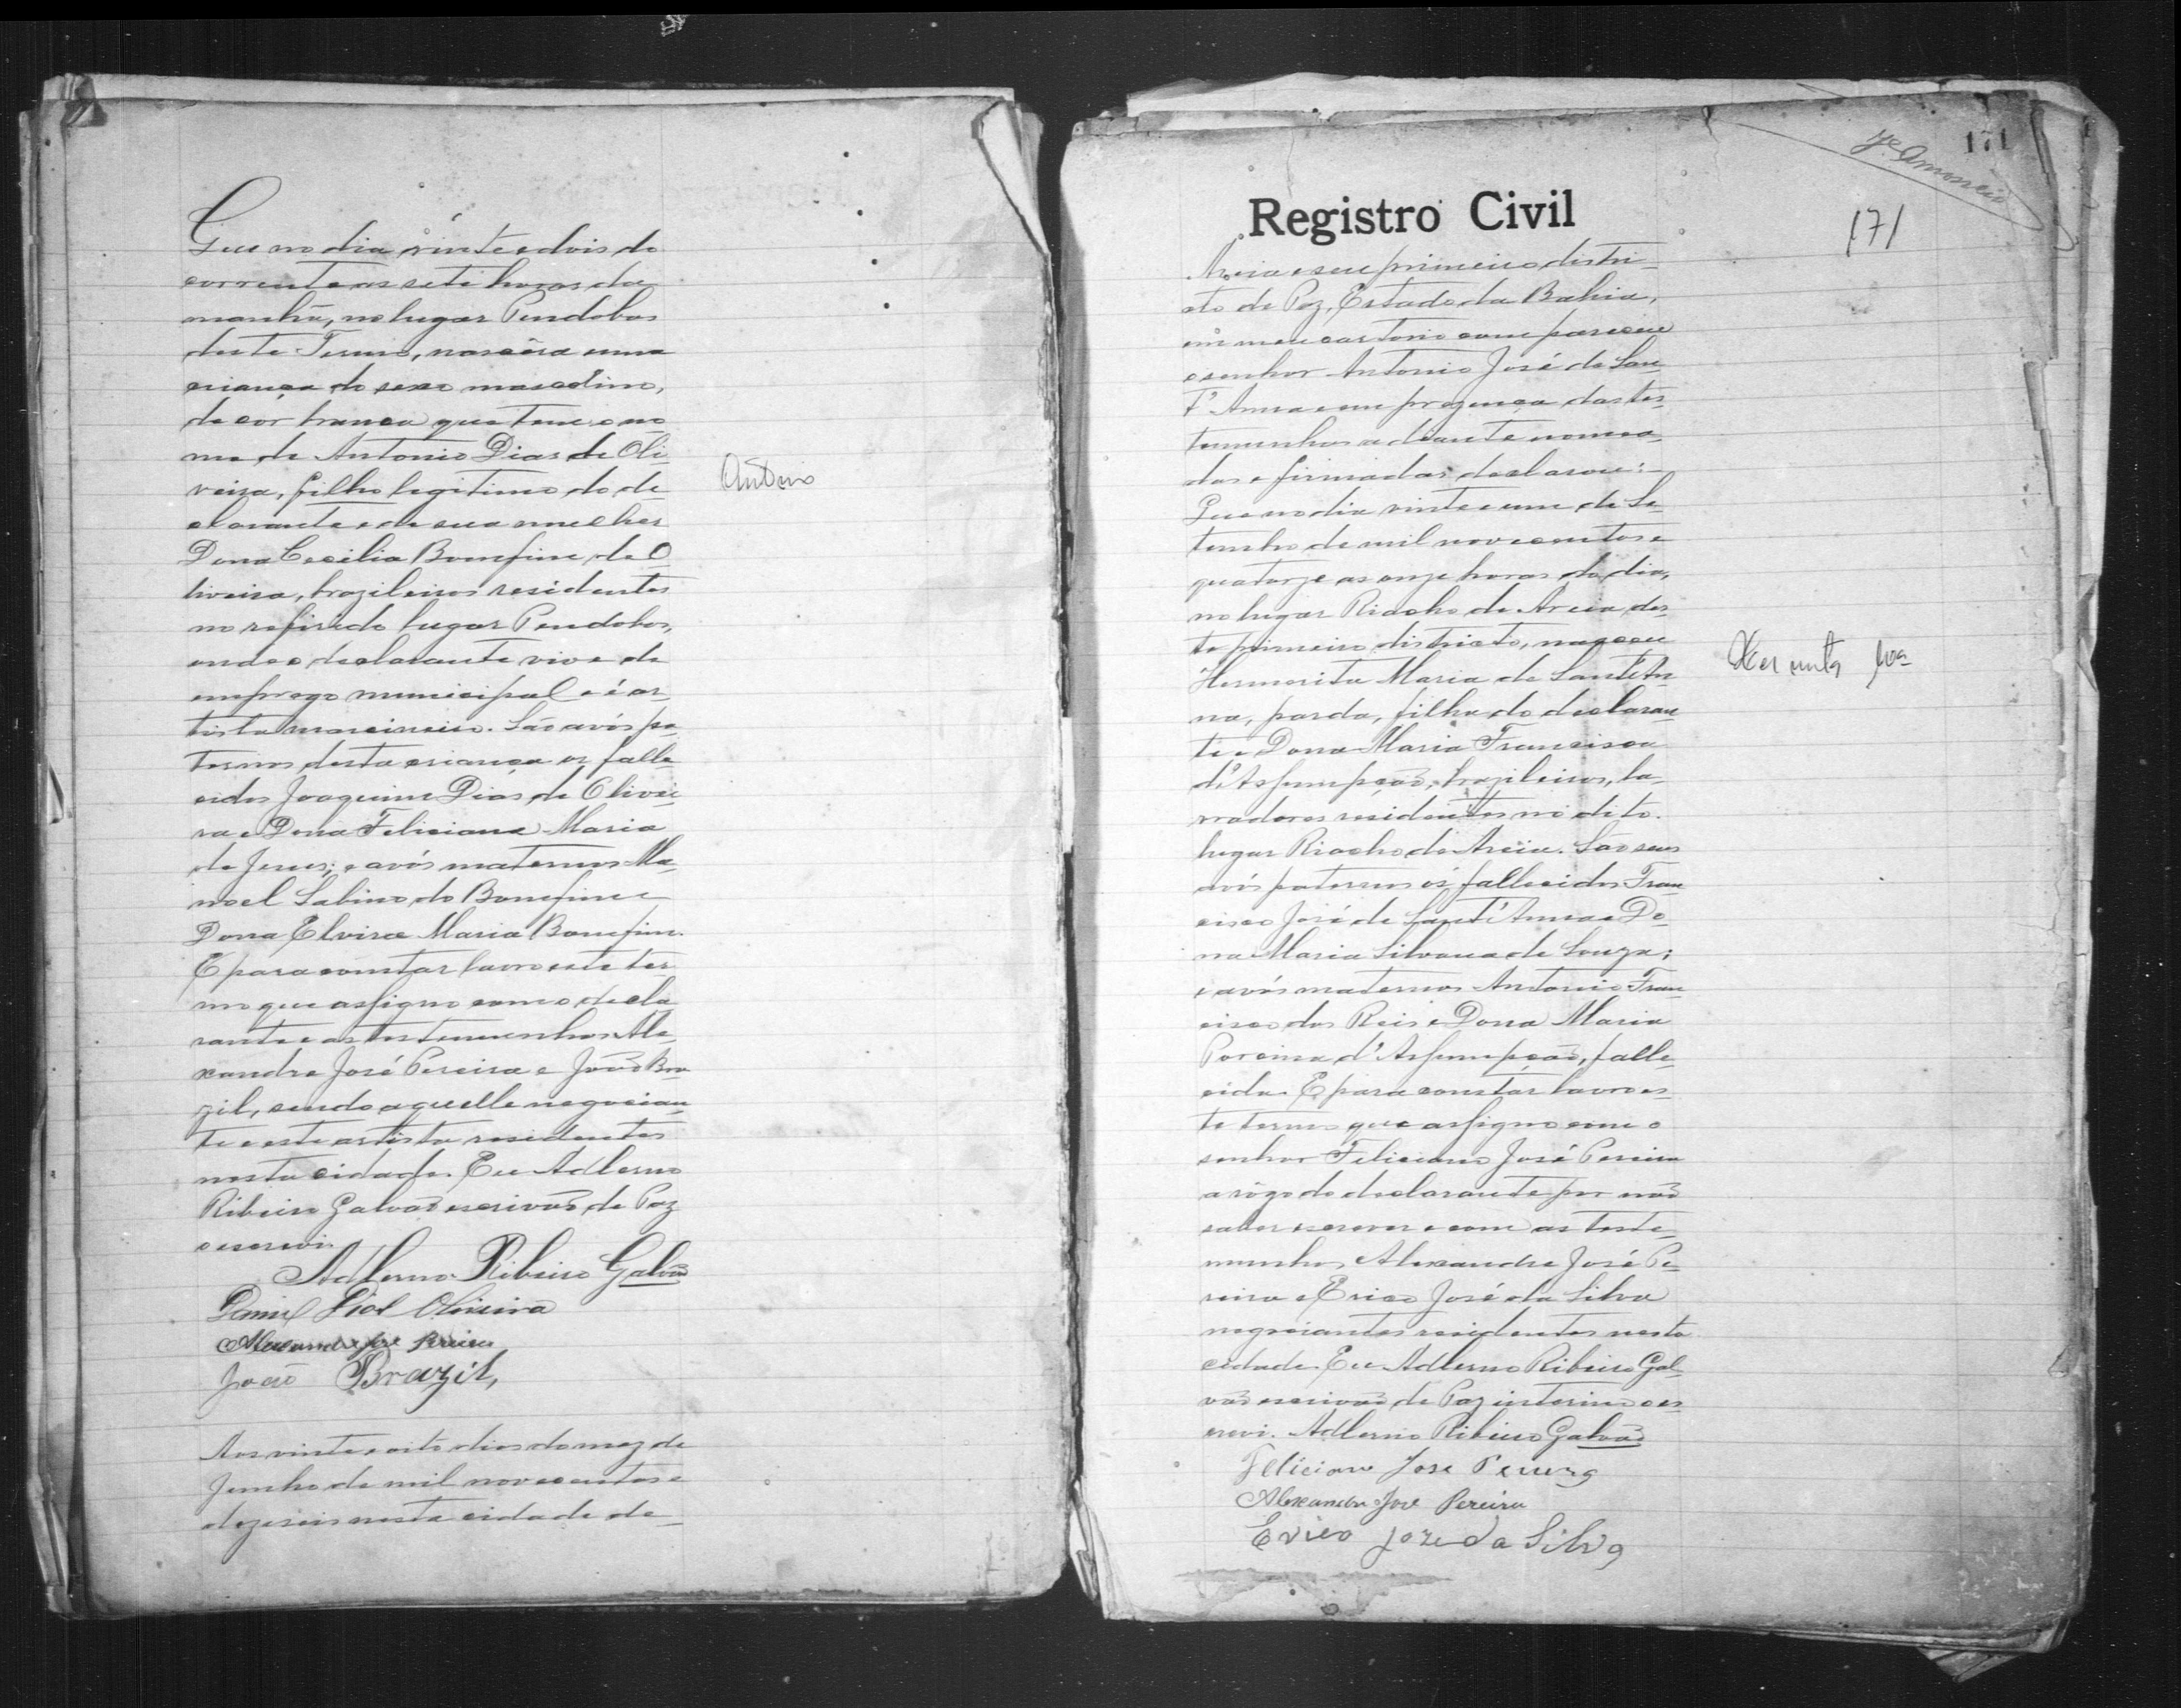 Que no dia vinte e dois do
corrente as sete horas da
manhã, no lugar Pindobas
deste Termo, nascêra uma
criança do sexo masculino,
de cor branca que tem o no
me de Antonio Dias de Oli-
veira, filho legitimo do de
clarante e de sua mulher
Dona Cecilia Bomfim de O
liveira, brazileiros residentes
no referido lugar Pindobas,
onde o declarante vive de
emprego municipal e é ar-
tista marcineiro. São avós pa
ternos desta criança os falle
cidos Joaquim Dias de Olivei-
ra e Dona Feliciana Maria
de Jesus; e avós maternos Ma-
noel Sabino do Bomfim e
Dona Elvira Maria Bomfim.
E para constar lavro este ter-
mo que assigno com o decla
rante e as testemunhas Ale-
xandre José Pereira e João Bra
zil, sendo aquelle negocian-
te e este artista residentes
nesta cidade. Eu Adlerno
Ribeiro Galvão escrivão de Paz
o escrevi.
Adlerno Ribeiro Galvão
Oliveira
Alexandre José Pereira
João Brazil,
Aos vinte e oito dias do mez de
Junho de mil novecentos e
dezeseis nesta cidade de
Antonio
171
Registro Civil
171
Areia e seu primeiro distri-
cto de Paz, Estado da Bahia,
em meu cartorio compareceu
o senhor Antonio José de San
t'Anna e em prezença das tes-
temunhas adeante nomea-
das e firmadas declarou:
Que no dia vinte e um de Se
tembro de mil novecentos e
quatorze as onze horas do dia,
no lugar Riacho de Areia des
te primeiro districto, nasceu
Hermerita Maria de Sant'An
na, parda, filha do declaran
te e Dona Maria Francisca
d'Assumpção, brazileiros, la-
vradores residentes no dito
lugar Riacho de Areia. São seus
avós paternos os fallecidos Fran
cisco José de Sant'Anna e Do-
na Maria Silvana de Souza;
e avós maternos Antonio Fran
cisco dos Reis e Dona Maria
Porcina d'Assumpção, falle-
cida. E para constar lavro es-
te termo que assigno com o
senhor Feliciano José Pereira
a rôgo do declarante por não
saber escrever e com as teste-
munhas Alexandre José Pe-
reira e Erico José da Silva
negociantes residentes nesta
cidade. Eu Adlerno Ribeiro Gal-
vão escrivão de Paz interino o es
crevi. Adlerno Ribeiro Galvão
Feliciano Jose Pereira
Alexandre José Pereira
Erico Joze da Silva